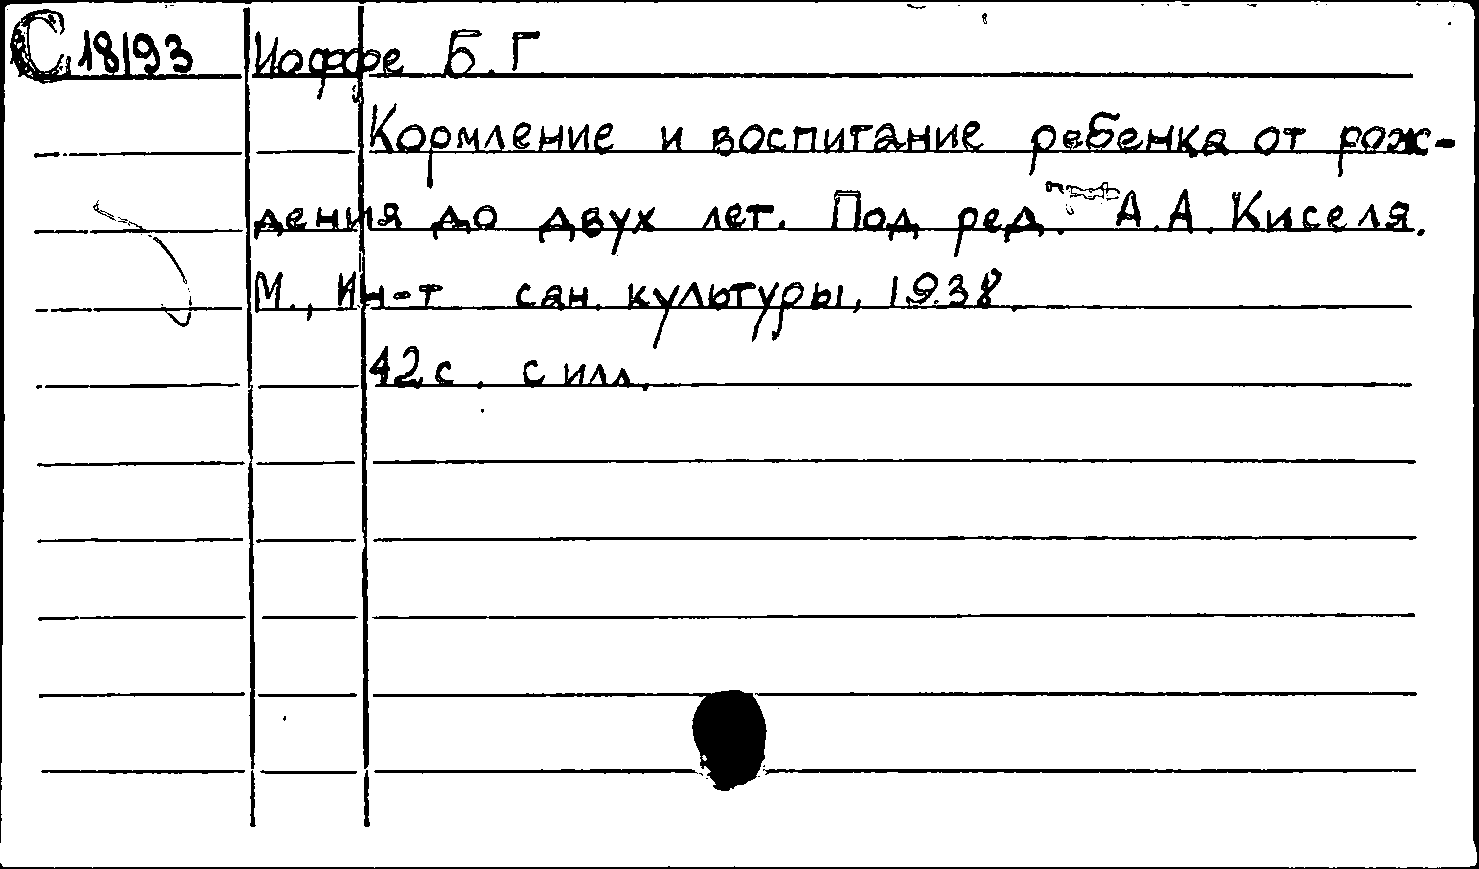 С 18/93 Иоффе Б.Г
Кормление и воспитание ребенка от рож-
дения до двух лет. Под ред. А.А. Киселя.
М., Ин-т сан. культуры, 1938.
42 с. с илл.